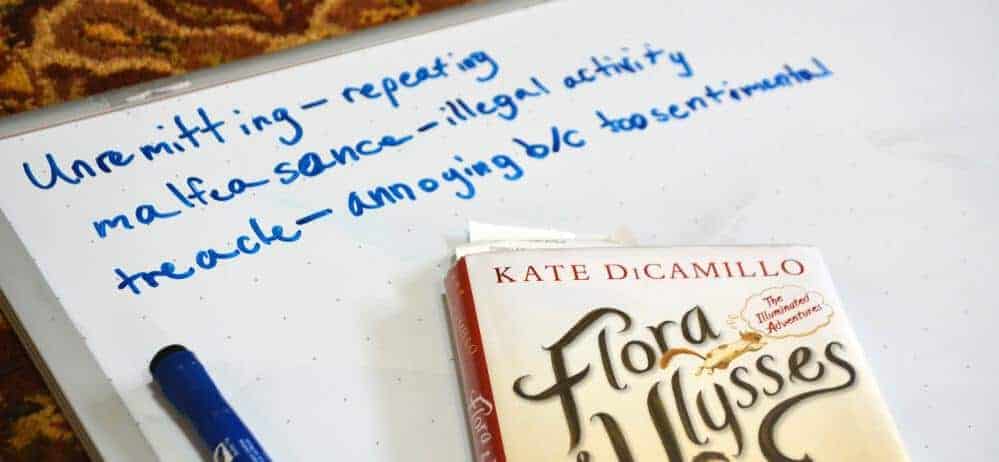 Unremitting - repeating
malfeasance - illegal activity
treacle - annoying b/c too sentimental
KATE DiCAMILLO
The
Illuminated
Adventures
Flora
& Ulysses
Flora